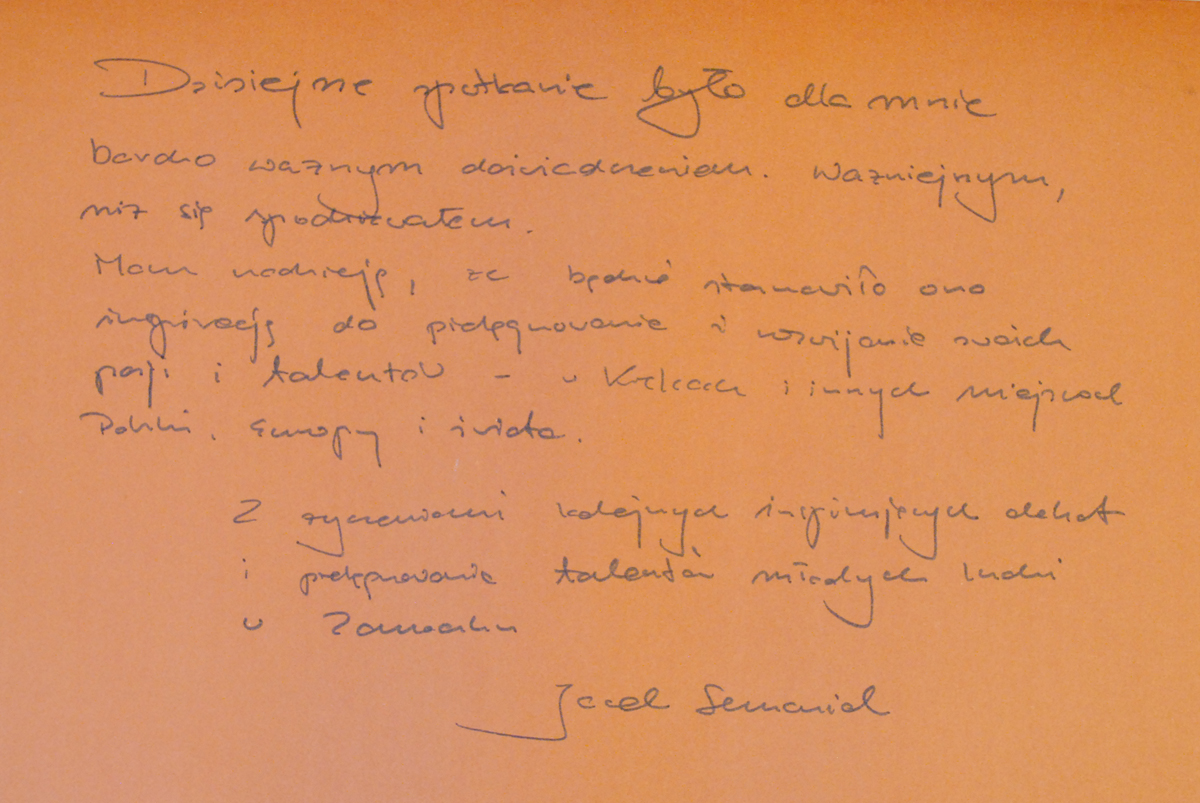 Dzisiejsze spotkanie było dla mnie
bardzo ważnym doświadczeniem. Ważniejszym,
niż się spodziewałem.
Mam nadzieję, że będzie stanowiło ono
inspirację do pielęgnowania i rozwijania swoich
pasji i talentów – w Kielcach i innych miejscach
Polski, Europy i świata.
Z życzeniami kolejnych inspirujących debat
i pielęgnowania talentów młodych ludzi
w
Jacek Semaniak